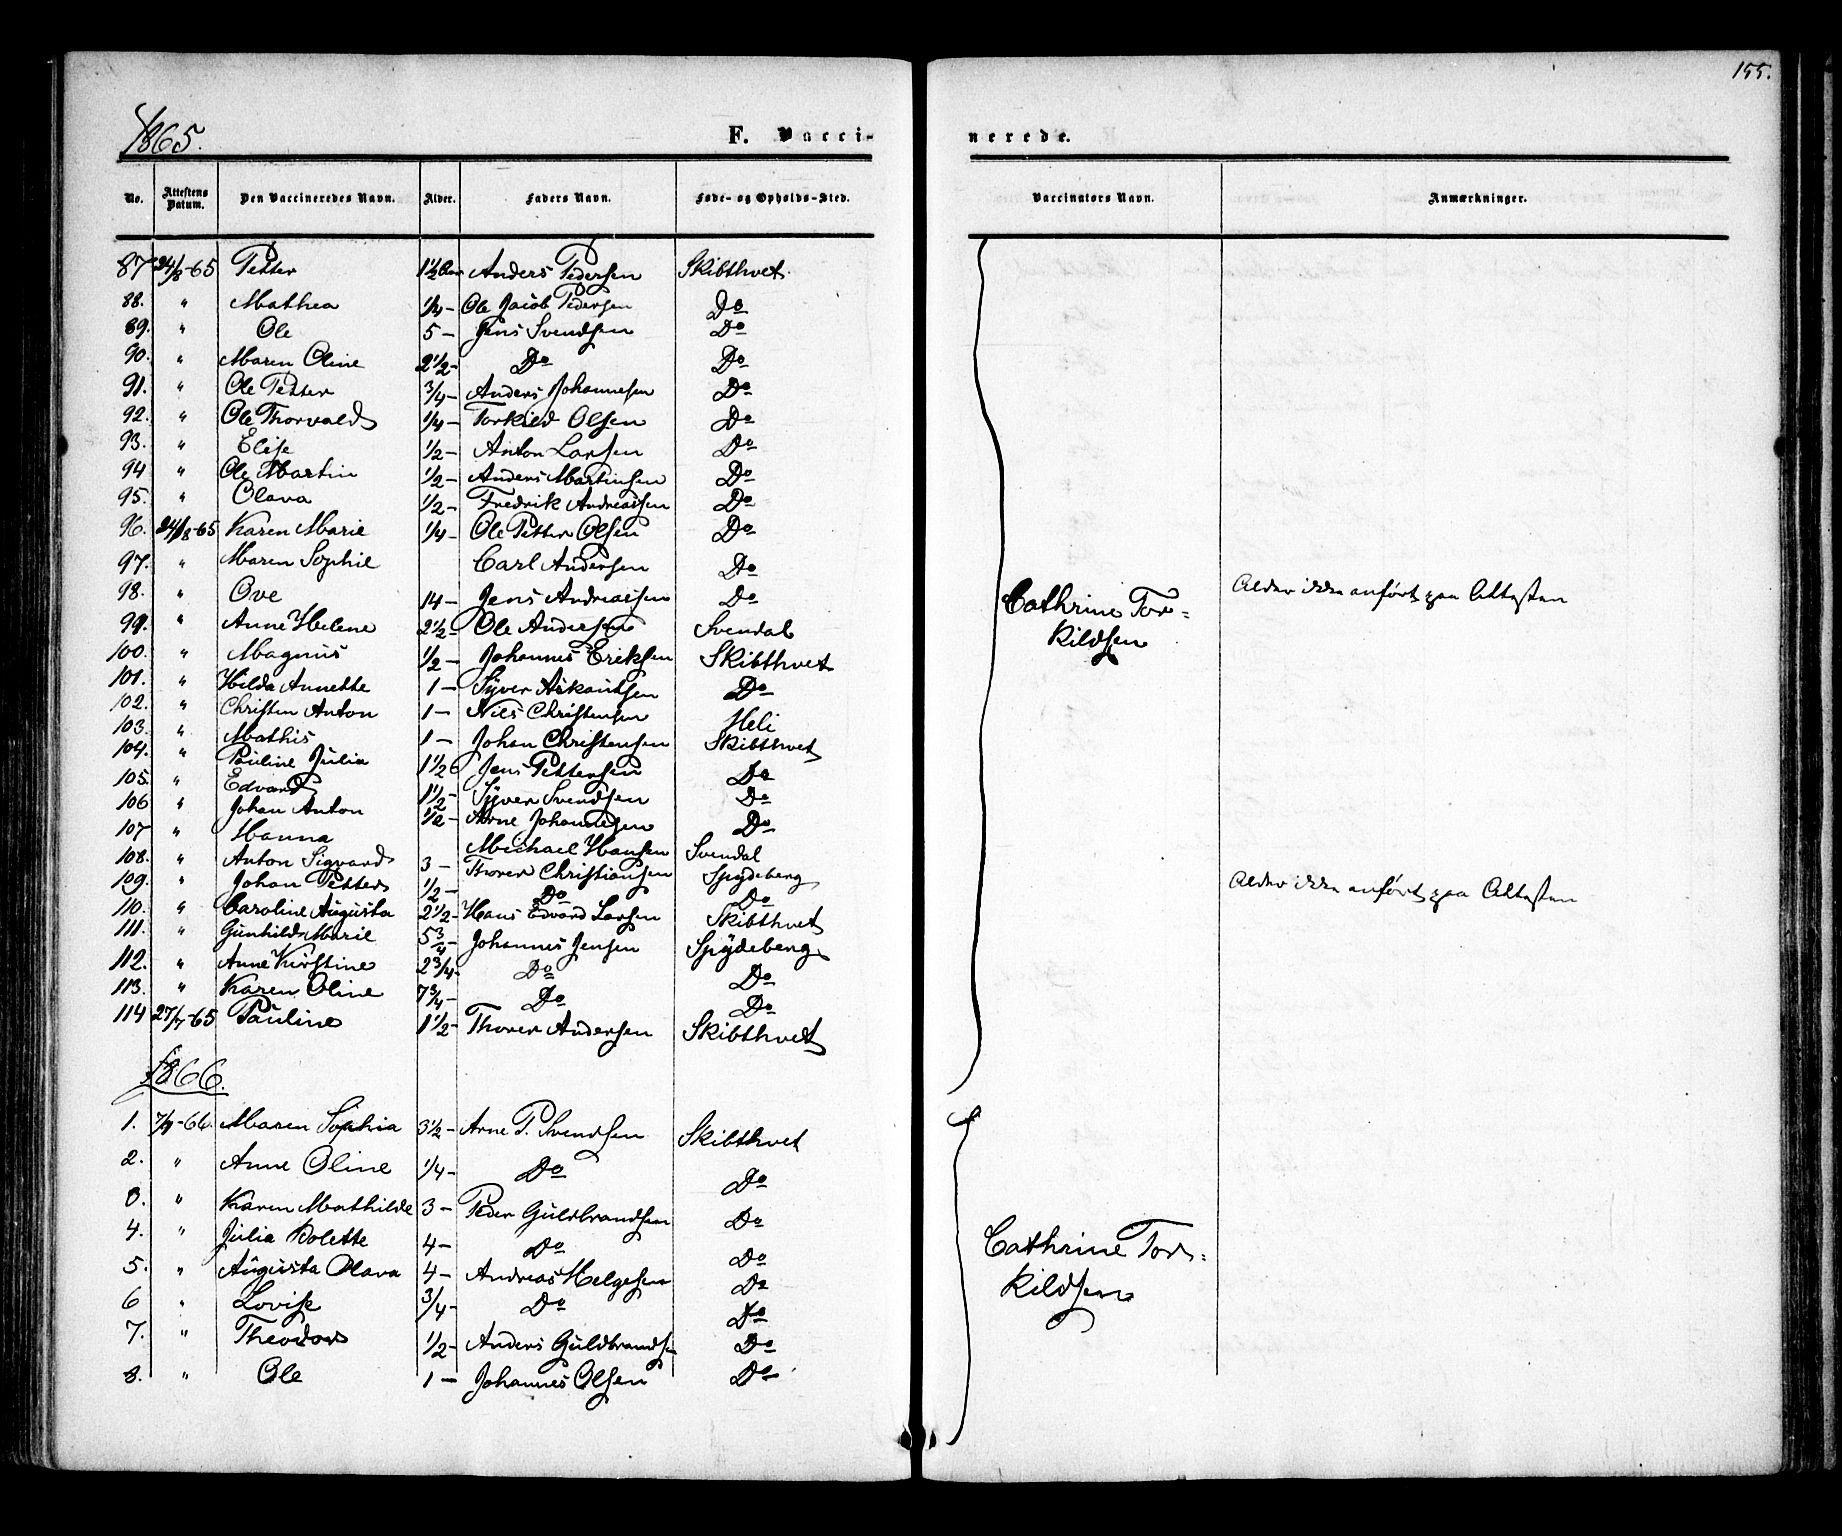 155.
1865. F. Vacci- nerede.
No. Attestens Datum. Den Vaccineredes Navn. Alder. Faders Navn. Føde- og Opholds-Sted. Vaccinators Navn. Anmærkninger.
87 24/8-65 Petter 1 1/2 Anders Pedersen Skibthvet.
88. " Mathea 1/4 - Ole Jacob Pedersen Do
89. " Ole 5 - Jens Svendsen Do
90. " Maren Oline 2 1/2 - Do Do
91. " Ole Petter 3/4 - Anders Johannesen Do
92. " Ole Thorvald 1/4 - Torkild Olsen Do
93. " Elise 1/2 - Anton Larsen Do
94 " Ole Martin 1/2 - Anders Martinsen Do
95. " Olava 1/2 - Fredrik Andreassen Do
96. 24/8-65 Karen Marie 1/4 - Ole Petter Olsen Do
97. " Maren Sophie Carl Andersen Do Alder ikke anført paa Attesten
98. " Ove 14 - Jens Andreassen Do Cathrine Tor=
99. " Anne Helene 2 1/2 - Ole Andersen Svendal kildsen
100. " Magnus 1/2 - Johannes Eriksen Skibthvet
101. " Hilda Annette 1 - Syver Askautsen Do
102. " Christen Anton 1 - Nils Christensen Heli
103. " Mathis 1 - Johan Christensen Skibthvet
104. " Pauline Julia 1 1/2 Jens Pettersen Do
105. " Edvard 1 1/2 - Syver Svendsen Do
106 " Johan Anton 1/2 - Arne Johannesen Do
107 " Hanna Michael Hansen Svendal
108. " Anton Sigvard 3 - Thorer Christiansen Spydeberg Alder ikke anført paa Attesten
109. " Johan Petter 1/2 - Do Do
110. " Caroline Augusta 2 1/2 - Hans Edvard Larsen Skibthvet
111. " Gunhild Marie 5 3/4 - Johannes Jensen Spydeberg
112. " Anne Kirstine 2 3/4 - Do Do
113. " Karen Oline 7 3/4 - Do Do
114 27/7-65 Pauline 1 1/2 - Thorer Andersen Skibthvet
1866.
1. 7/7-66. Maren Sophia 3 1/2 - Arne P. Svendsen Skibthvet
2. " Anne Oline 1/4 - Do Do
3. " Karen Mathilde 3 - Peder Guldbrandsen Do
4. " Julia Bolette 4 - Do Do Cathrine Tor=
5. " Augusta Olava 4 - Andreas Helgesen Do kildsen
6 " Lovise 3/4 - Do Do
7. " Theodor 1/2 - Anders Guldbrandsen Do
8. " Ole 1 - Johannes Olsen Do